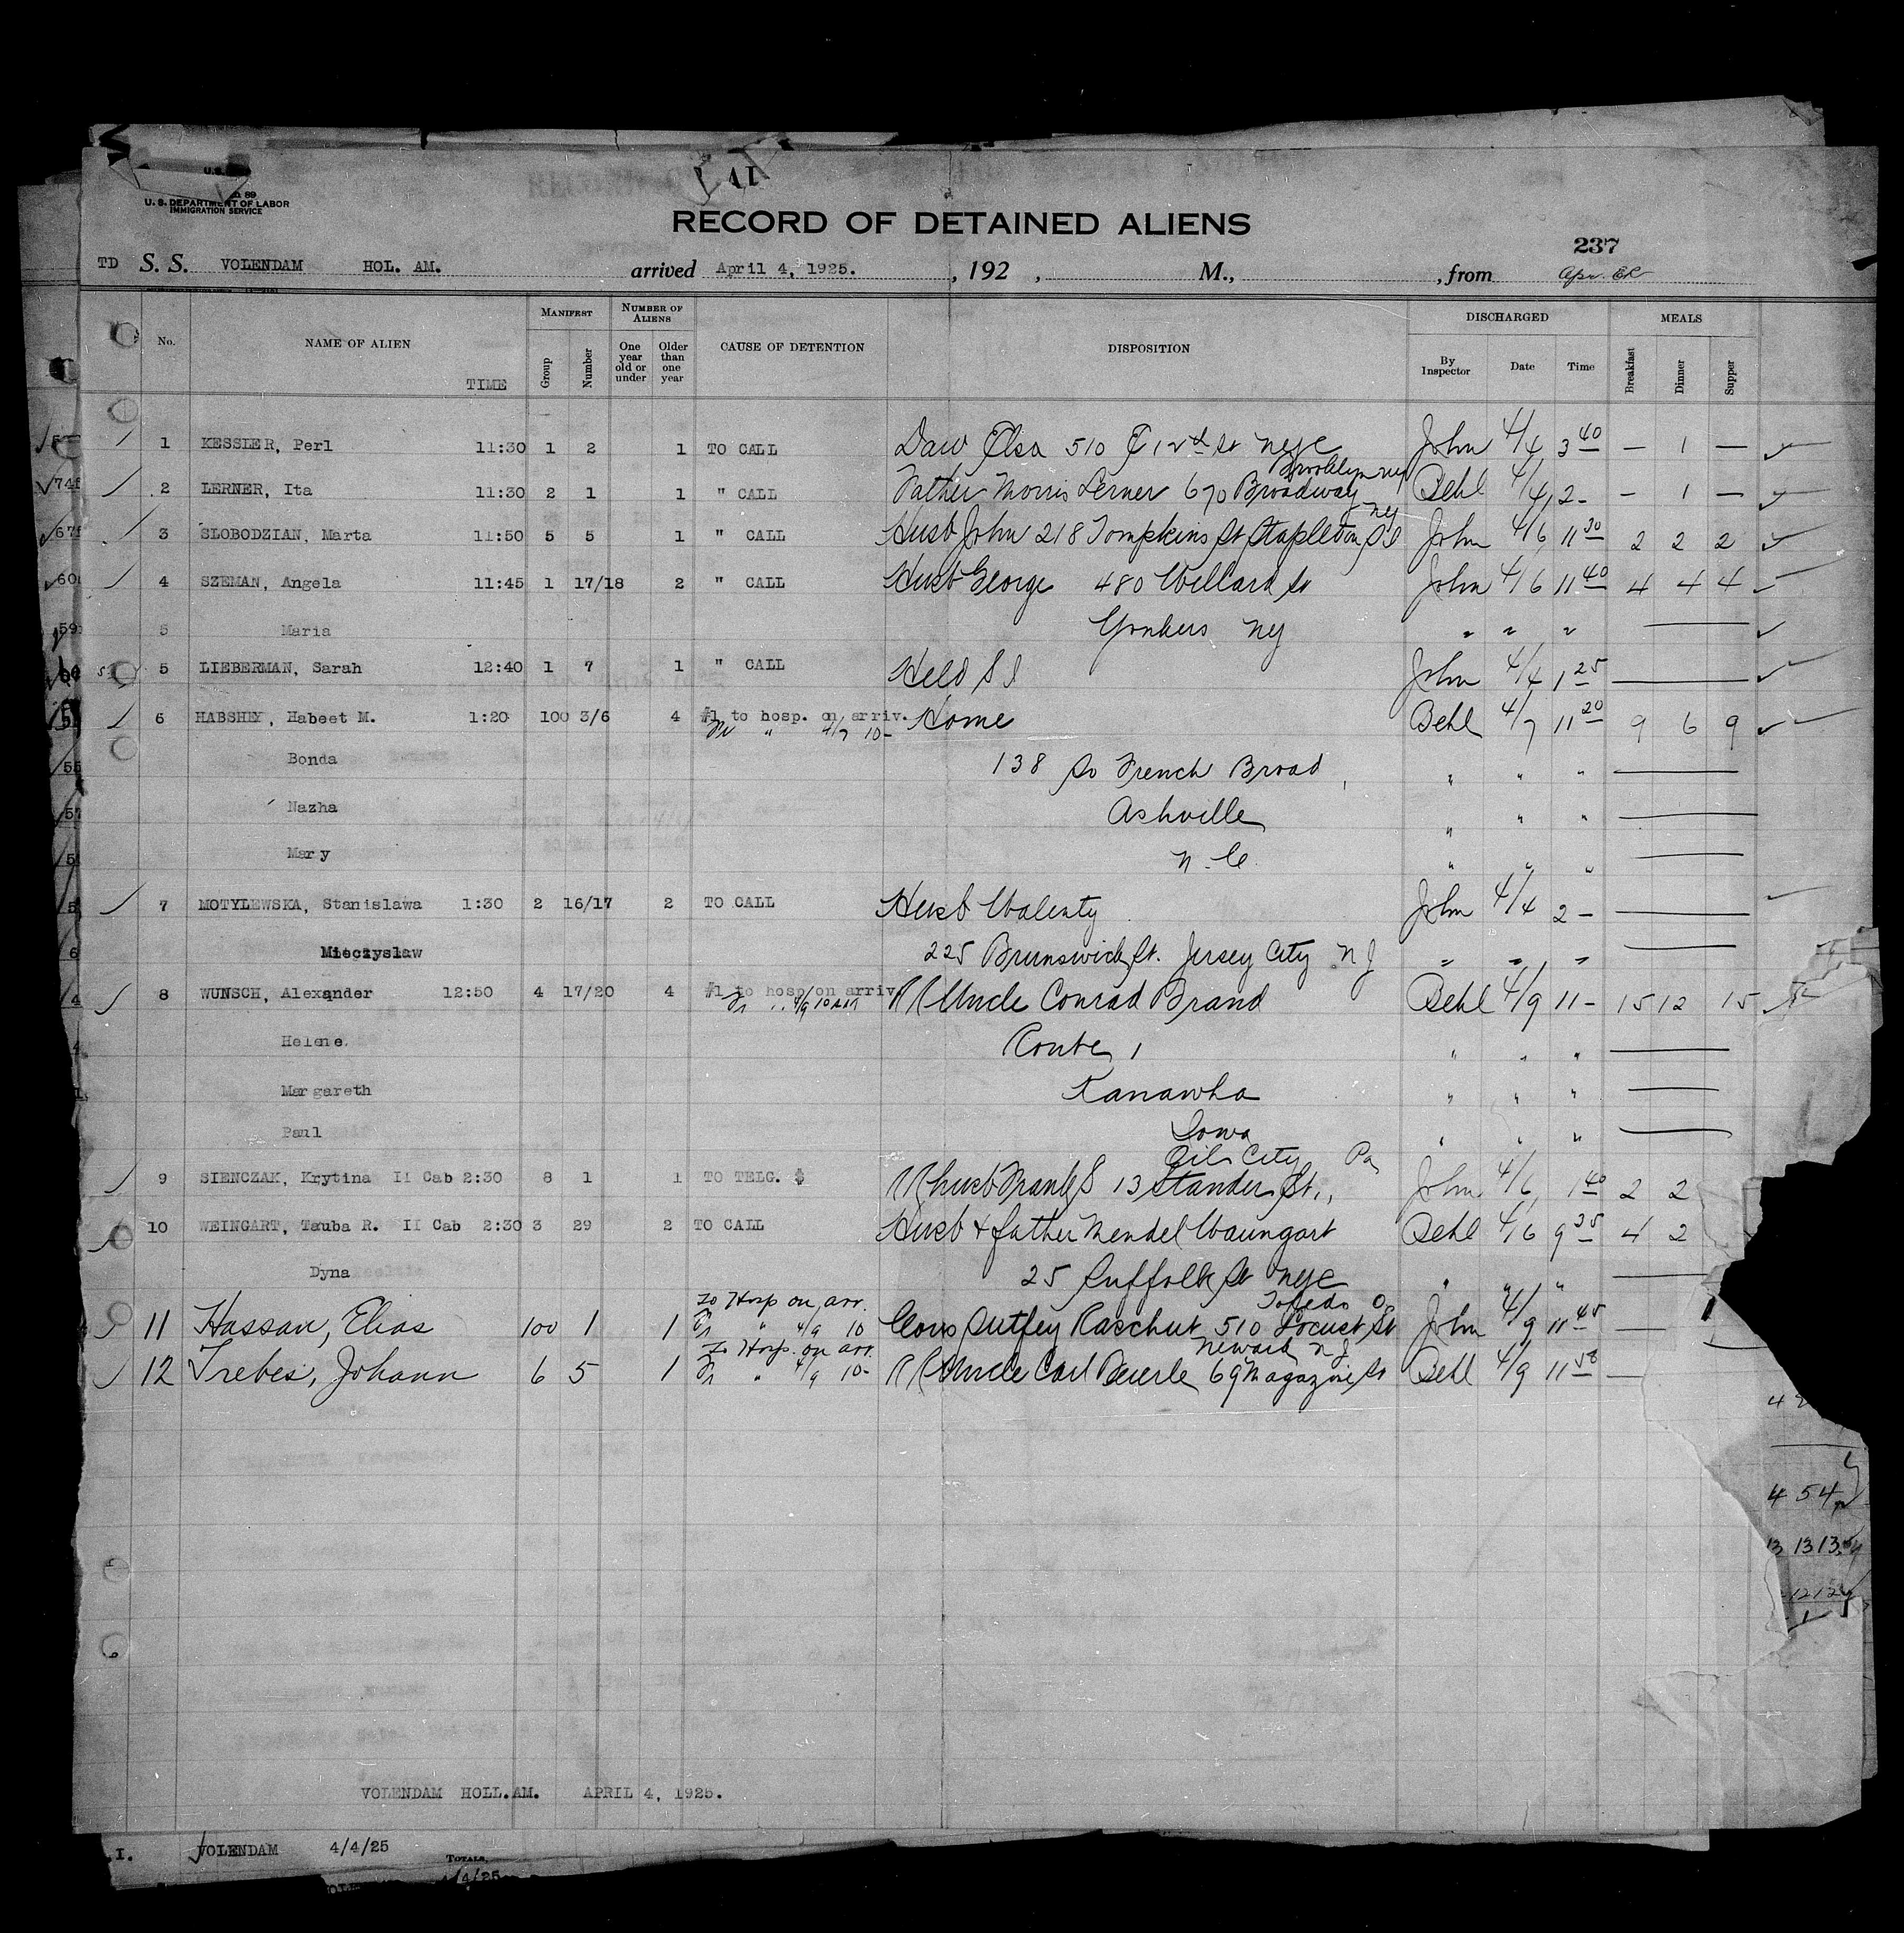 U. S. DEPARTMENT OF LABOR
IMMIGRATION SERVICE
RECORD OF DETAINED ALIENS
237
TD S. S. VOLENDAM HOL. AM. arrived April 4, 1925. , 192 , M., , from
No. NAME OF ALIEN TIME MANIFEST Group Number NUMBER OF ALIENS One year old or under Older than one year CAUSE OF DETENTION DISPOSITION DISCHARGED By Inspector Date Time MEALS Breakfast Dinner Supper
1 KESSLER, Perl 11:30 1 2 1 TO CALL Daw Elsa 510 E 12th St NYC John 4/4 3 40 — 1 —
Brooklyn NY
2 LERNER, Ita 11:30 2 1 1 " CALL Father Morris Lerner 670 Broadway Behl 4/4 2- — 1 —
NY
3 SLOBODZIAN, Marta 11:50 5 5 1 " CALL Husb John 218 Tompkins St Stapleton SI John 4/6 11 30 2 2 2
4 SZEMAN, Angela 11:45 1 17/18 2 " CALL Husb George 480 Willard St John 4/6 11 40 4 4 4
5 Maria Yonkers NY " " " —
5 LIEBERMAN, Sarah 12:40 1 7 1 " CALL Held S I John 4/4 1 25 —
6 HABSHEY, Habeet M. 1:20 100 3/6 4 #1 to hosp. on arriv. Home Behl 4/7 11 20 9 6 9
Fr " 4/7 10-
Bonda 138 So French Broad " " " —
Nazha Ashville " " " —
Mary N. C. " " " —
7 MOTYLEWSKA, Stanislawa 1:30 2 16/17 2 TO CALL Husb Walenty John 4/4 2- —
Mieczyslaw 225 Brunswick St. Jersey City N J " " " —
8 WUNSCH, Alexander 12:50 4 17/20 4 #1 to hosp/on arriv RR Uncle Conrad Brand Behl 4/9 11- 15 12 15
Fr " 4/9 10 AM
Helene Route 1 " " " —
Margareth Kanawha " " " —
Paul Iowa " " " —
Oil City Pa
9 SIENCZAK, Krytina II Cab 2:30 8 1 1 TO TELG. $ RR husb Frank S 13 Stander St., John 4/6 1 40 2 2
10 WEINGART, Tauba R. II Cab 2:30 3 29 2 TO CALL Husb & father Mendel Waungart Behl 4/6 9 35 4 2
Dyna 25 Suffolk St NYC " " " —
To Hosp on arr. Toledo O.
11 Hassan, Elias 100 1 1 Fr " 4/9 10 Cous Raschut 510 Locust St John 4/9 11 45 —
To Hosp. on arr. Newark N J
12 Trebes, Johann 6 5 1 Fr " 4/9 10- RR Uncle Carl Beierle 69 Magazine St Behl 4/9 11 58 —
4 5 4
13 13 13
12 12
VOLENDAM HOLL.AM. APRIL 4, 1925.
I. VOLENDAM 4/4/25
TOTALS,
4/4/25